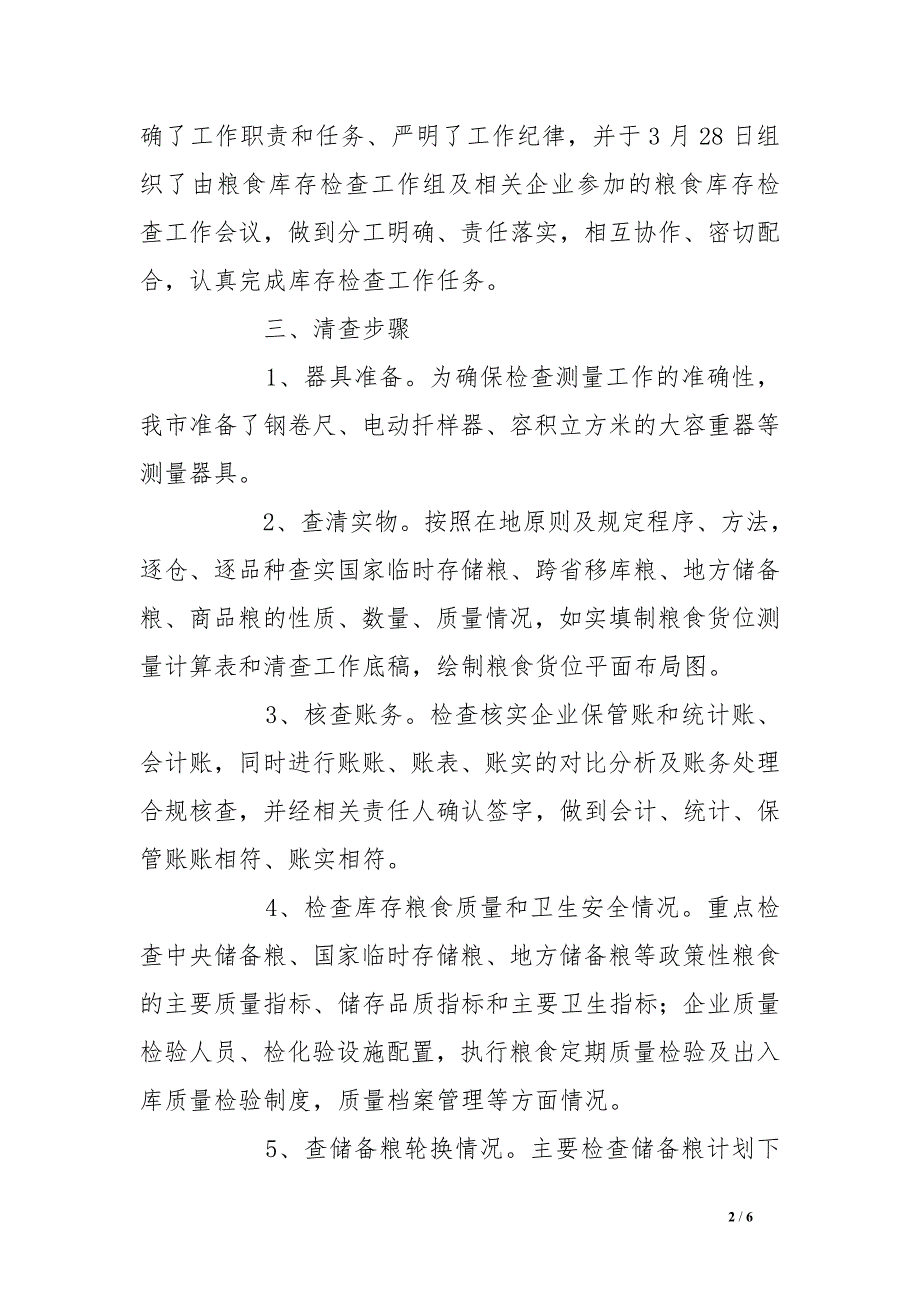 确了工作职责和任务、严明了工作纪律，并于 3 月 28 日组
织了由粮食库存检查工作组及相关企业参加的粮食库存检
查工作会议，做到分工明确、责任落实，相互协作、密切配
合，认真完成库存检查工作任务。
三、清查步骤
1、器具准备。为确保检查测量工作的准确性，
我市准备了钢卷尺、电动扦样器、容积立方米的大容重器等
测量器具。
2、查清实物。按照在地原则及规定程序、方法，
逐仓、逐品种查实国家临时存储粮、跨省移库粮、地方储备
粮、商品粮的性质、数量、质量情况，如实填制粮食货位测
量计算表和清查工作底稿，绘制粮食货位平面布局图。
3、核查账务。检查核实企业保管账和统计账、
会计账，同时进行账账、账表、账实的对比分析及账务处理
合规核查，并经相关责任人确认签字，做到会计、统计、保
管账账相符、账实相符。
4、检查库存粮食质量和卫生安全情况。重点检
查中央储备粮、国家临时存储粮、地方储备粮等政策性粮食
的主要质量指标、储存品质指标和主要卫生指标；企业质量
检验人员、检化验设施配置，执行粮食定期质量检验及出入
库质量检验制度，质量档案管理等方面情况。
5、查储备粮轮换情况。主要检查储备粮计划下
2 / 6